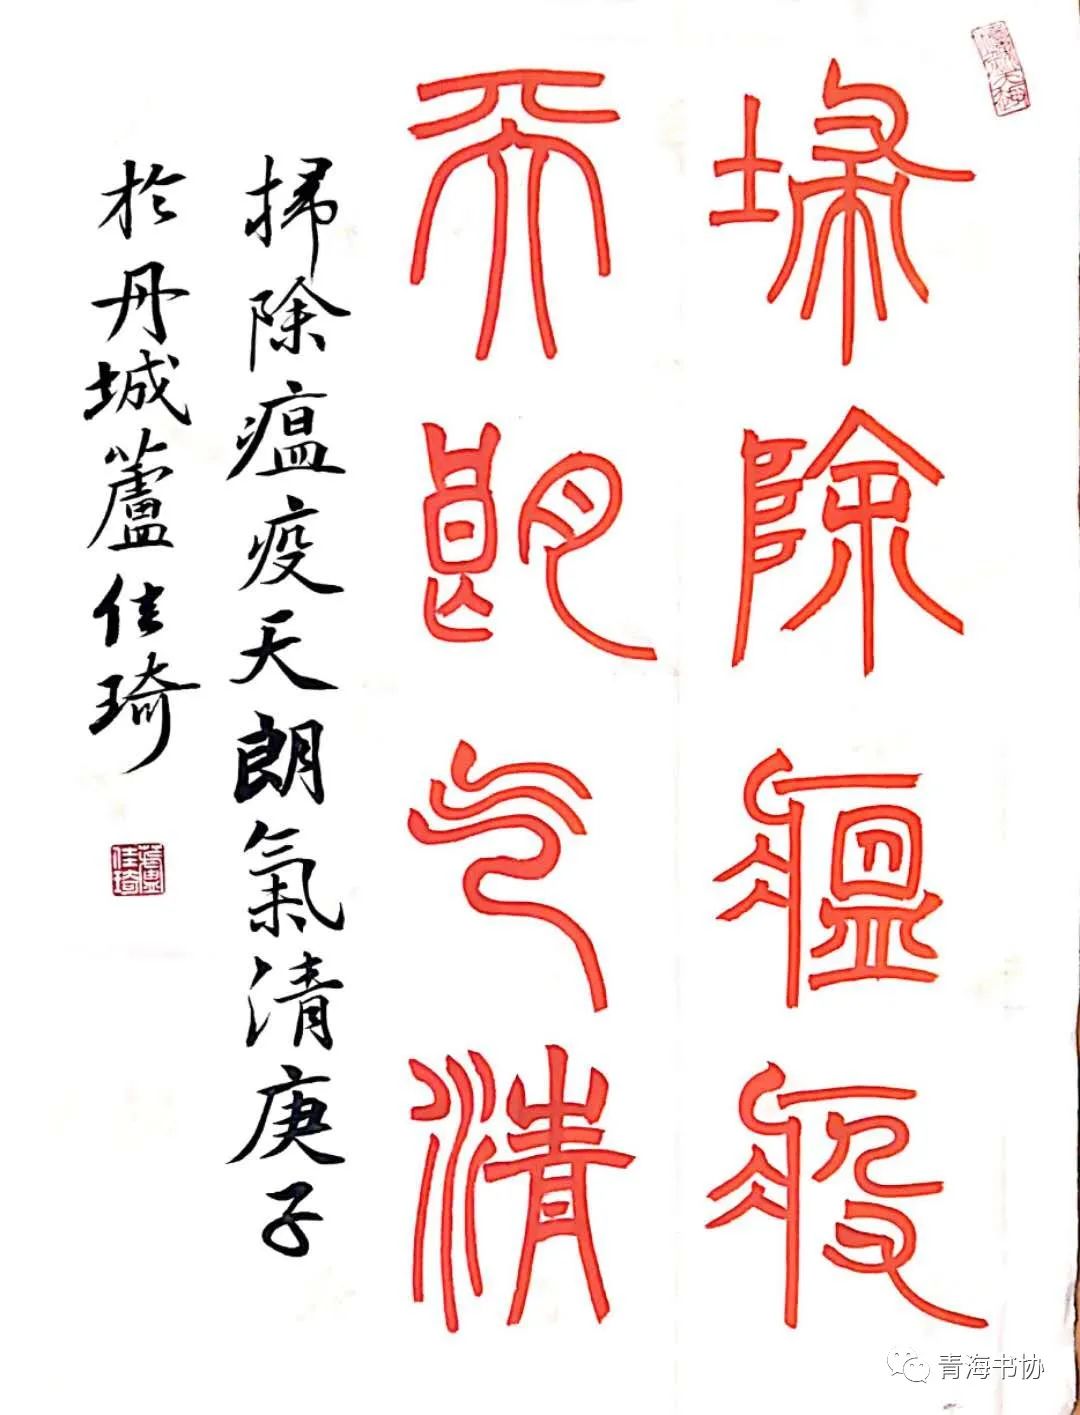 埽除瘟疫
天朗气清
掃除瘟疫天朗氣清庚子
於丹城蘆佳琦
青海书协